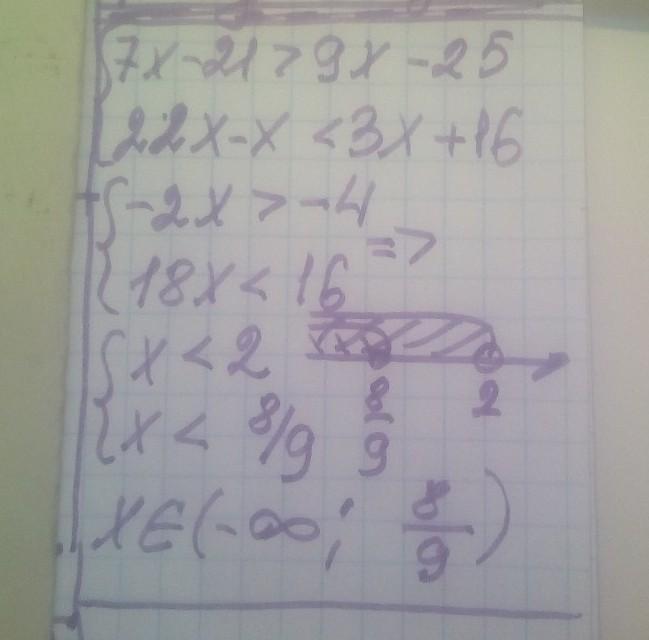 {7x-21>9x-25
{22x-x<3x+16
{-2x>-4
=>
{18x<16
{x<2
{x< 8/9
8/9 2
x∈(-∞; 8/9)